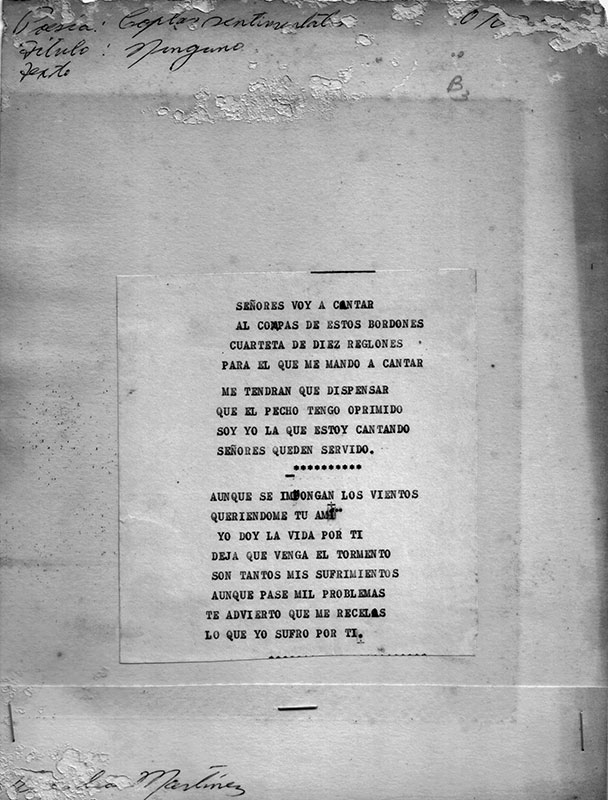 Poesía: Coplas sentimental
Título: Ninguno
Texto
B3
SEÑORES VOY A CANTAR
AL COMPAS DE ESTOS BORDONES
CUARTETA DE DIEZ REGLONES
PARA EL QUE ME MANDO A CANTAR
ME TENDRAN QUE DISPENSAR
QUE EL PECHO TENGO OPRIMIDO
SOY YO LA QUE ESTOY CANTANDO
SEÑORES QUEDEN SERVIDO.
**********
AUNQUE SE IMPONGAN LOS VIENTOS
QUERIENDOME TU AMI
YO DOY LA VIDA POR TI
DEJA QUE VENGA EL TORMENTO
SON TANTOS MIS SUFRIMIENTOS
AUNQUE PASE MIL PROBLEMAS
TE ADVIERTO QUE ME RECELAS
LO QUE YO SUFRO POR TI.
Martínez